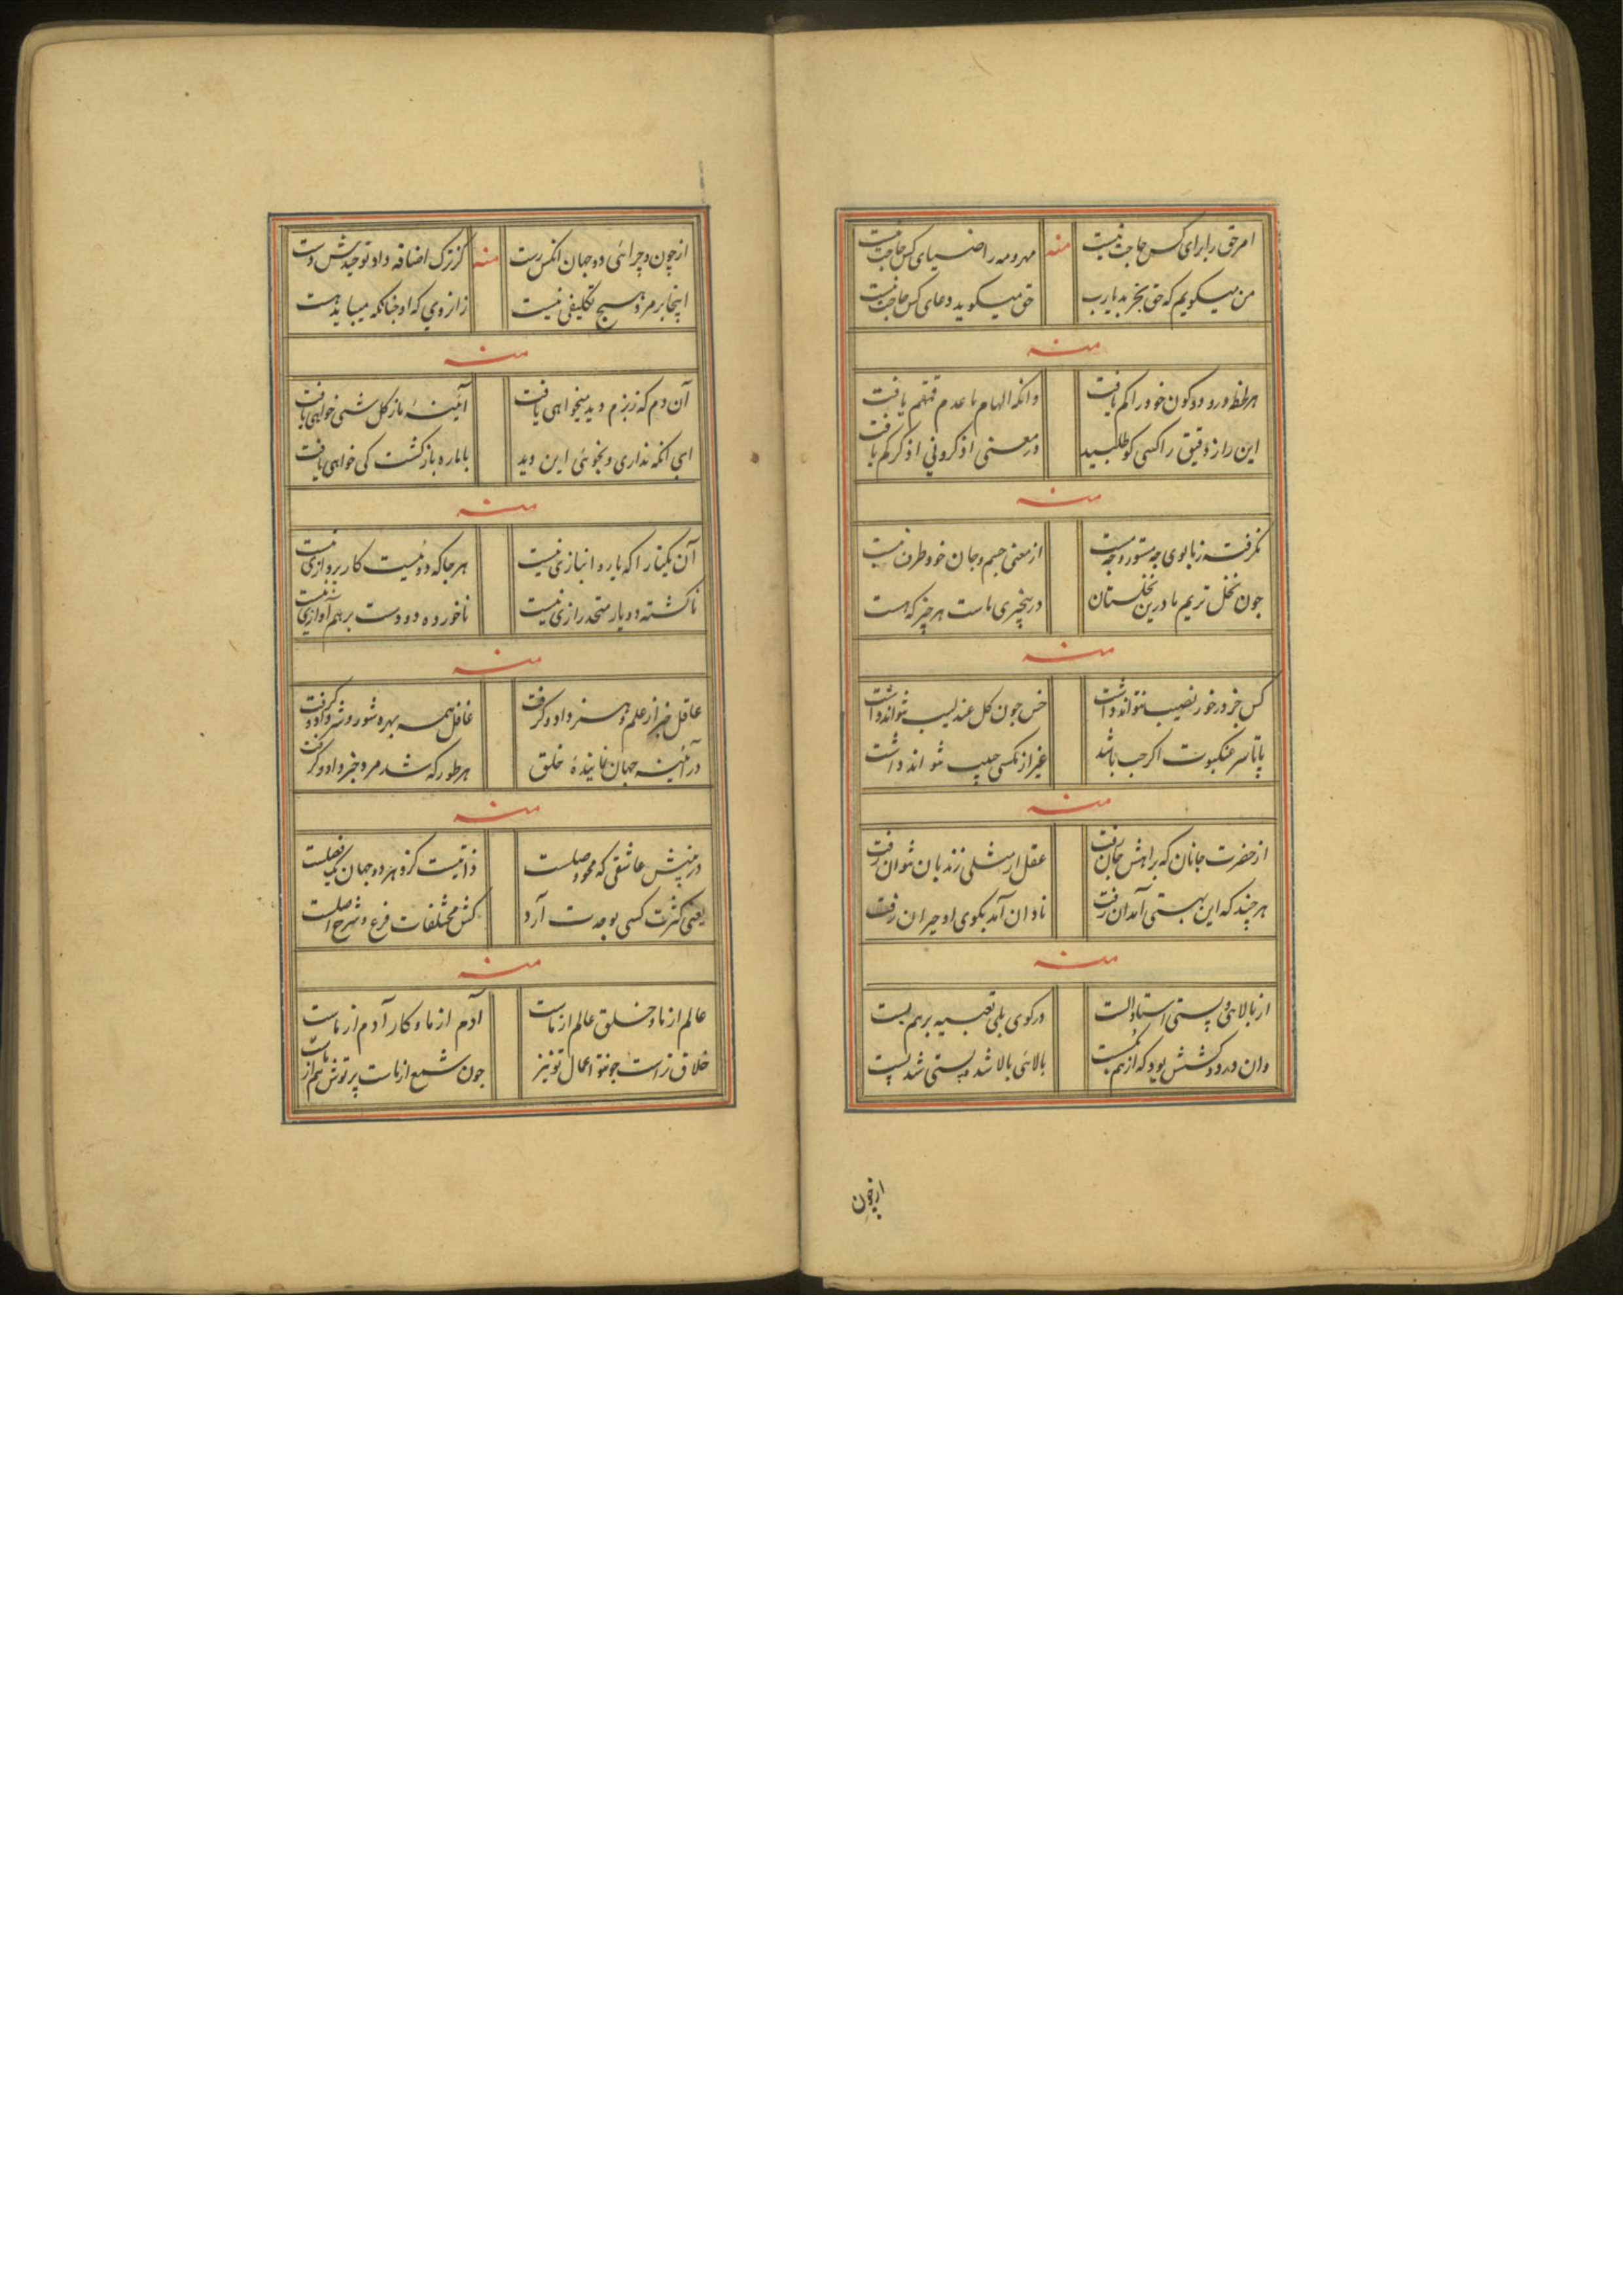 امر حق را برای کس حاجت نیست منه مهر و مه را ضیای کس حاجت نیست
من میکویم که حق بخیر بد یارب حق میکوید دعای کس حاجت نیست
منه
هر لحظه درود کون خود را کم یافت وانکه الهام با عدم یافت
این راز دقیق را کسی کو طلبید در معنی اذکرونی اذکرکم یافت
منه
نکرفته ز ما بوی چه مستور و چه مست از معنی جسم و جان خود طرف نیست
چون نخل تریم ما درین نخلستان در بیخبری ماست هر چیز که هست
منه
کس جز در خور نصیب نتواند داشت خس چون کل عندلیب نتواند داشت
پا تا سر عنکبوت اکر جب باشد غیر از مکسی حبیب نتواند داشت
منه
از حضرت جانان که براهش جان رفت عقل ار مثلی زند بان نتوان رفت
هر چند که این بهستی آمد آن رفت نادان آمد بکوی او حیران رفت
منه
از بالائی و پستی استاد الست در کوی بلی تعبیه برهم بست
وان در دو کشش بود که از هم بکسست بالائی بالا شد و پستی شد پست
از چون
از چون و چرائی دو جهان انکس رست منه کز ترک اضافه داد توحیدش دست
اینجا بر مرد هیچ تکلیفی نیست زانروی که او چنانکه میباید هست
منه
آن دم که ز بزم دید میخواهی یافت آئینه ما ز کل شی خواهی یافت
ای انکه نداری و نجوئی این دید با ما ره بازکشت کی خواهی یافت
منه
آن یکتا را که یار و انبازی نیست هر جا که دوئیست کار پردازی نیست
ناکشته دو یار متحد رازی نیست ناخورده دو دست بر هم آوازی نیست
منه
عاقل خبر از علم و هنر داد و کرفت غافل همه بهره شور و شر داد و کرفت
در آئینه جهان نماینده خلق هر طور که شد مرد خبر داد و کرفت
منه
در بینش عاشقی که محو وصلست ذاتیست کزو هر دو جهان یک فصلست
یعنی کثرت کسی بوحدت آرد کش مختلفات فرع و شرح اصلست
منه
عالم از ما و خلق عالم از ماست آدم از ما و کار آدم از ماست
خلاق تراست چونتو اعمال تو نیز چون شمع از ماست پرتوش هم از ماست